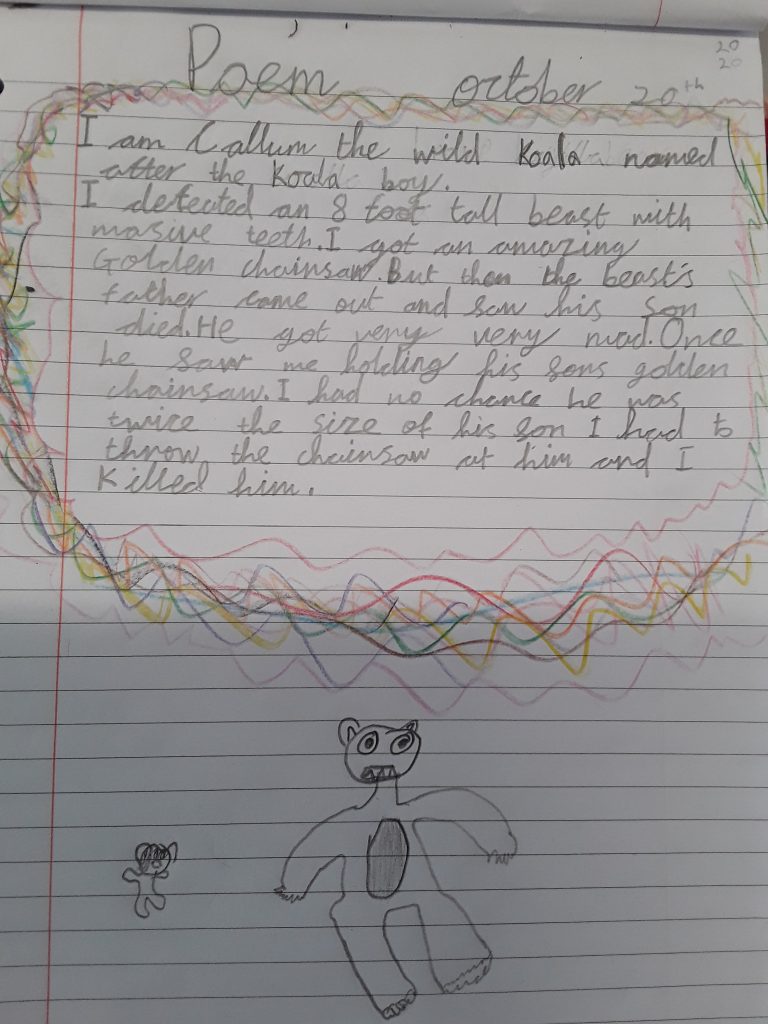 Poem october 20th
20
20
I am Callum the wild Koala named
after the Koala boy.
I defeated an 8 foot tall beast with
masive teeth.I got an amazing
Golden chainsaw.But then the beast's
father came out and saw his son
died.He got very very mad.Once
he saw me holding his sons golden
chainsaw.I had no chance he was
twice the size of his son I had to
throw the chainsaw at him and I
killed him.